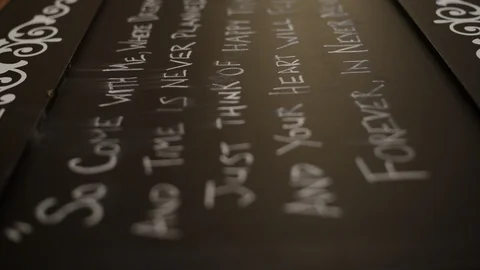 "So Come with Me, Where
And Time is never
Just Think of Happy
And Your Heart will
Forever, in Never